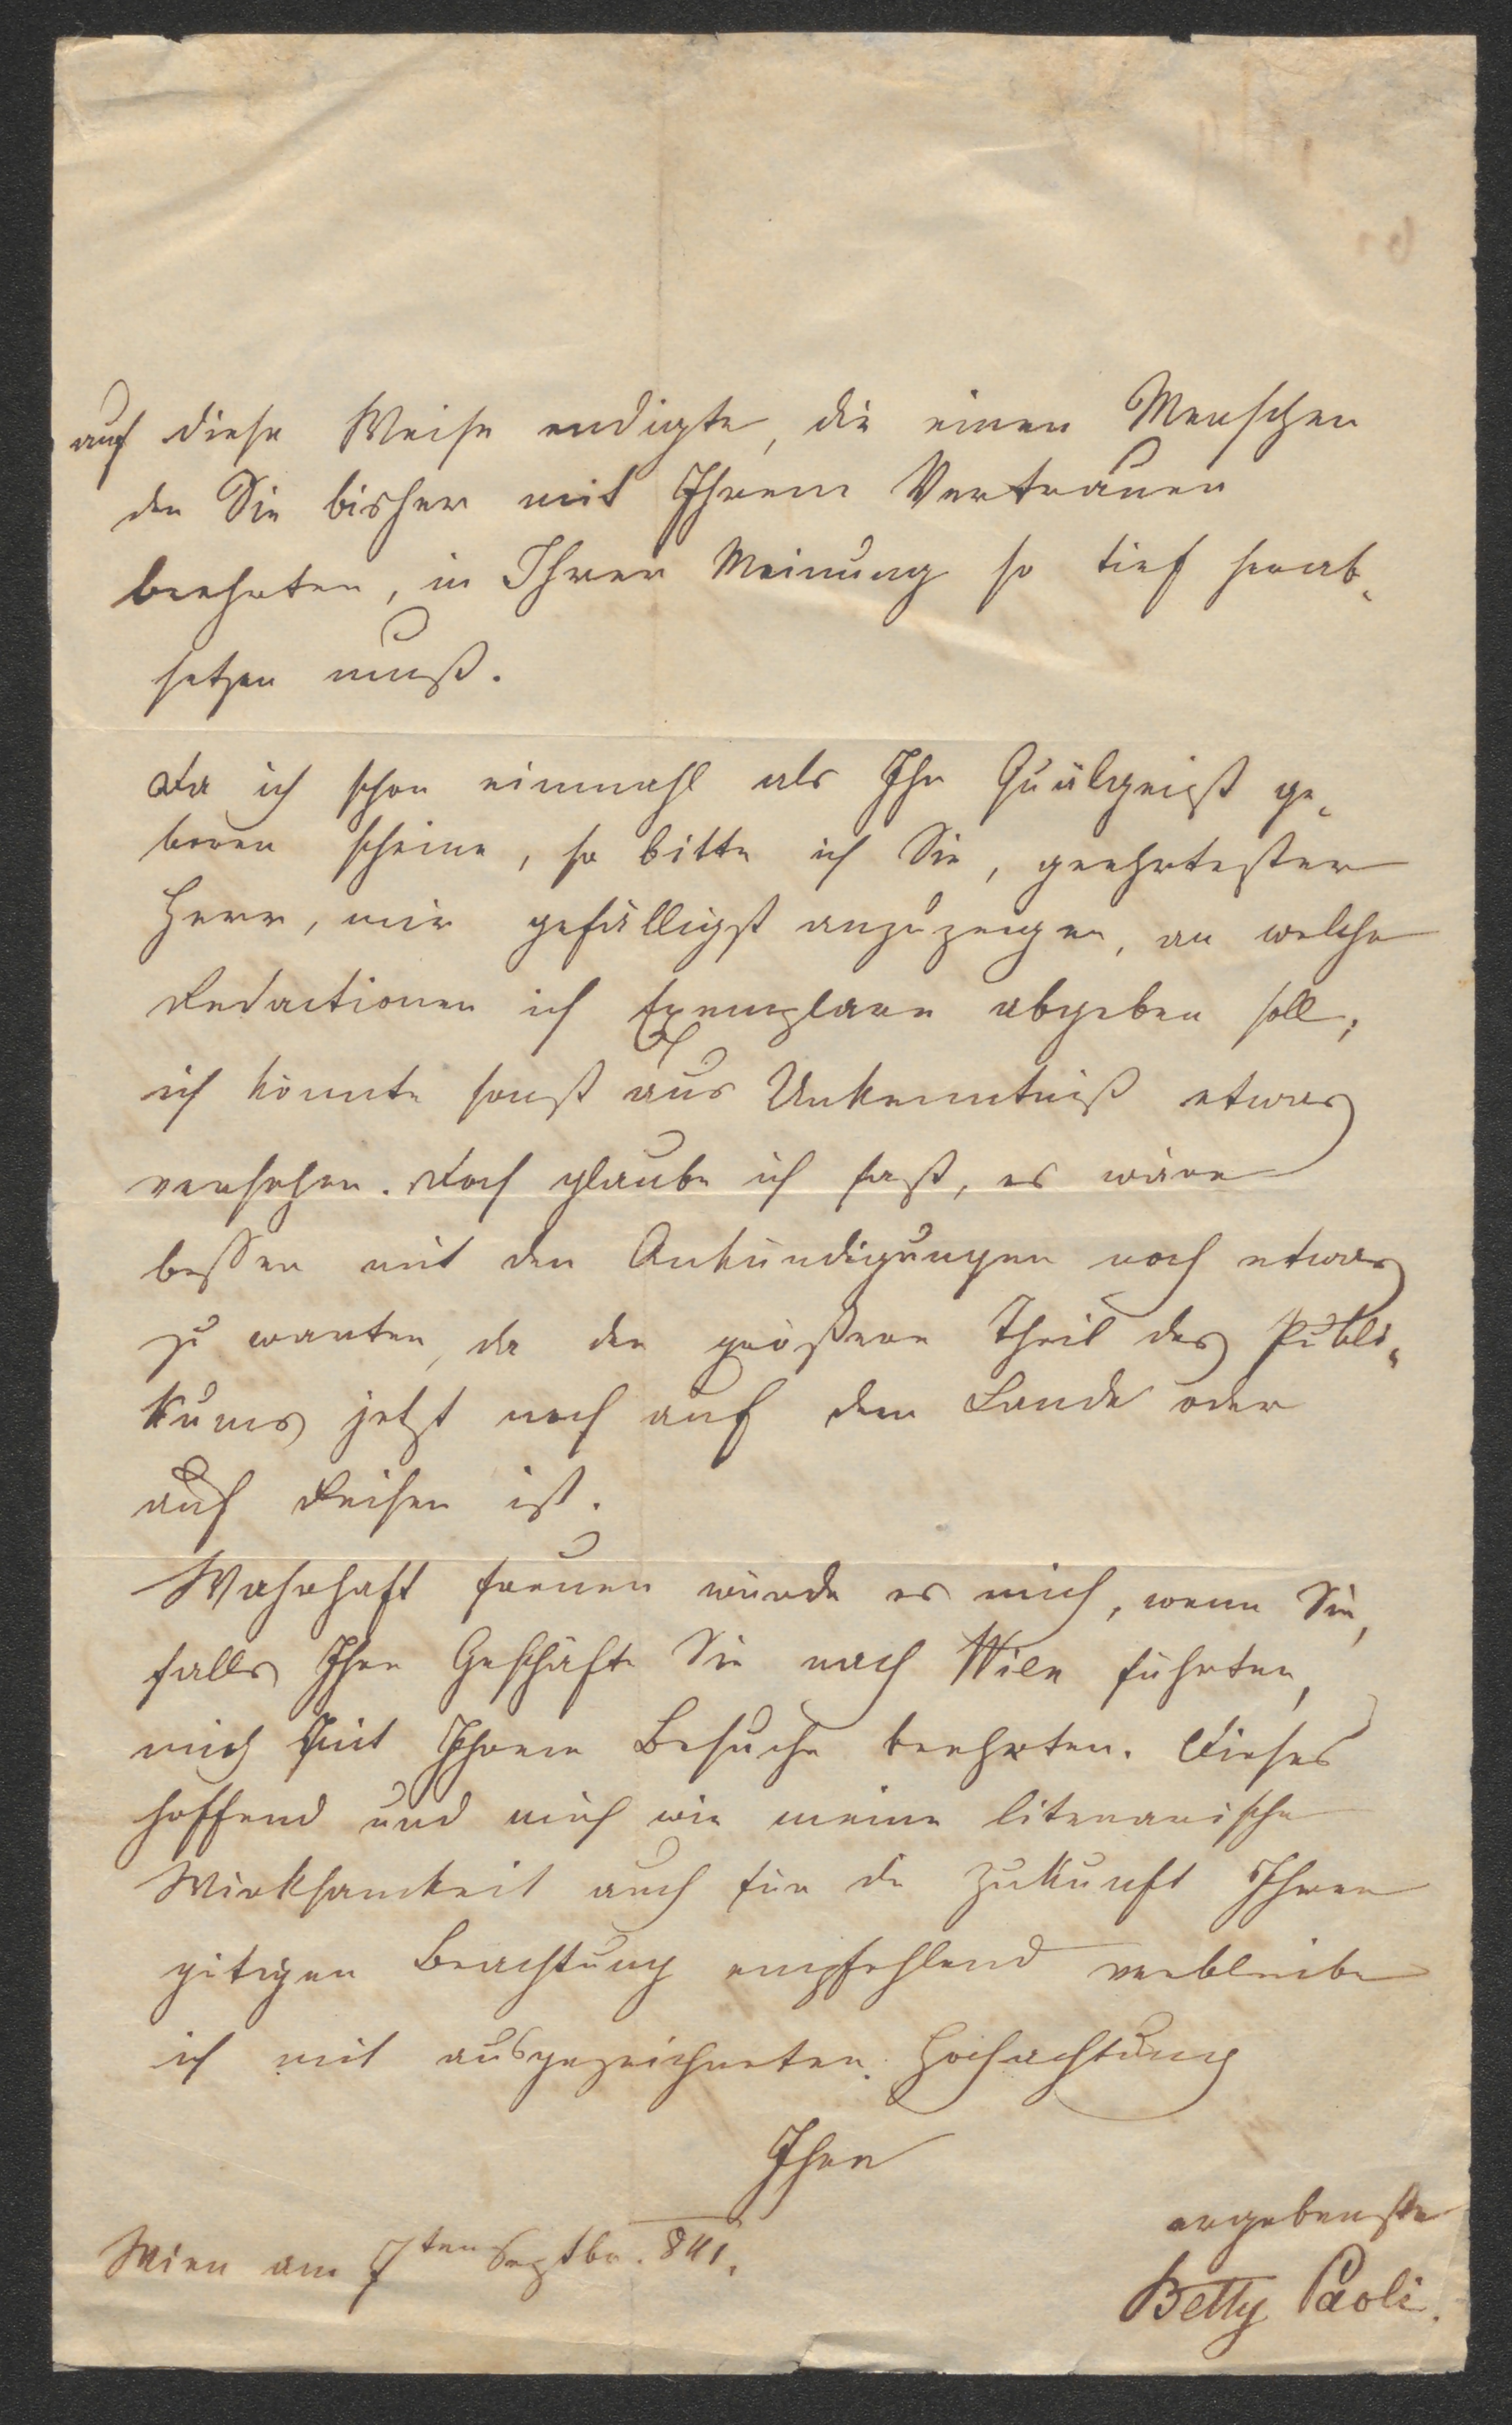 auf diese Weise endigte, die einen Menschen
den Sie bisher mit Ihrem Vertrauen
beehrten, in Ihrer Meinung so tief herab-
setzen muß.
Da ich schon einmahl als Ihr Quälgeist ge-
boren scheine, so bitte ich Sie, geehrtester
Herr, mir gefälligst anzuzeigen, an welche
Redactionen ich Exemplare abgeben soll;
ich könnte sonst aus Unkenntniß etwas
versehen. Doch glaube ich fast, es wäre
besser mit den Ankündigungen noch etwas
zu warten, da der größere Theil des Publi-
kums jetzt noch auf dem Lande oder
auf Reisen ist.
Wahrhaft freuen würde es mich, wenn Sie,
falls Ihre Geschäfte Sie nach Wien führten,
mich mit Ihrem Besuche beehrten. Dieses
hoffend und mich wie meine literarische
Wirksamkeit auch für die Zukunft Ihrer
gütigen Beachtung empfehlend verbleibe
ich mit ausgezeichneter Hochachtung
Ihre
ergebenste
Wien am 7ten Septbr. 841.
Betty Paoli.